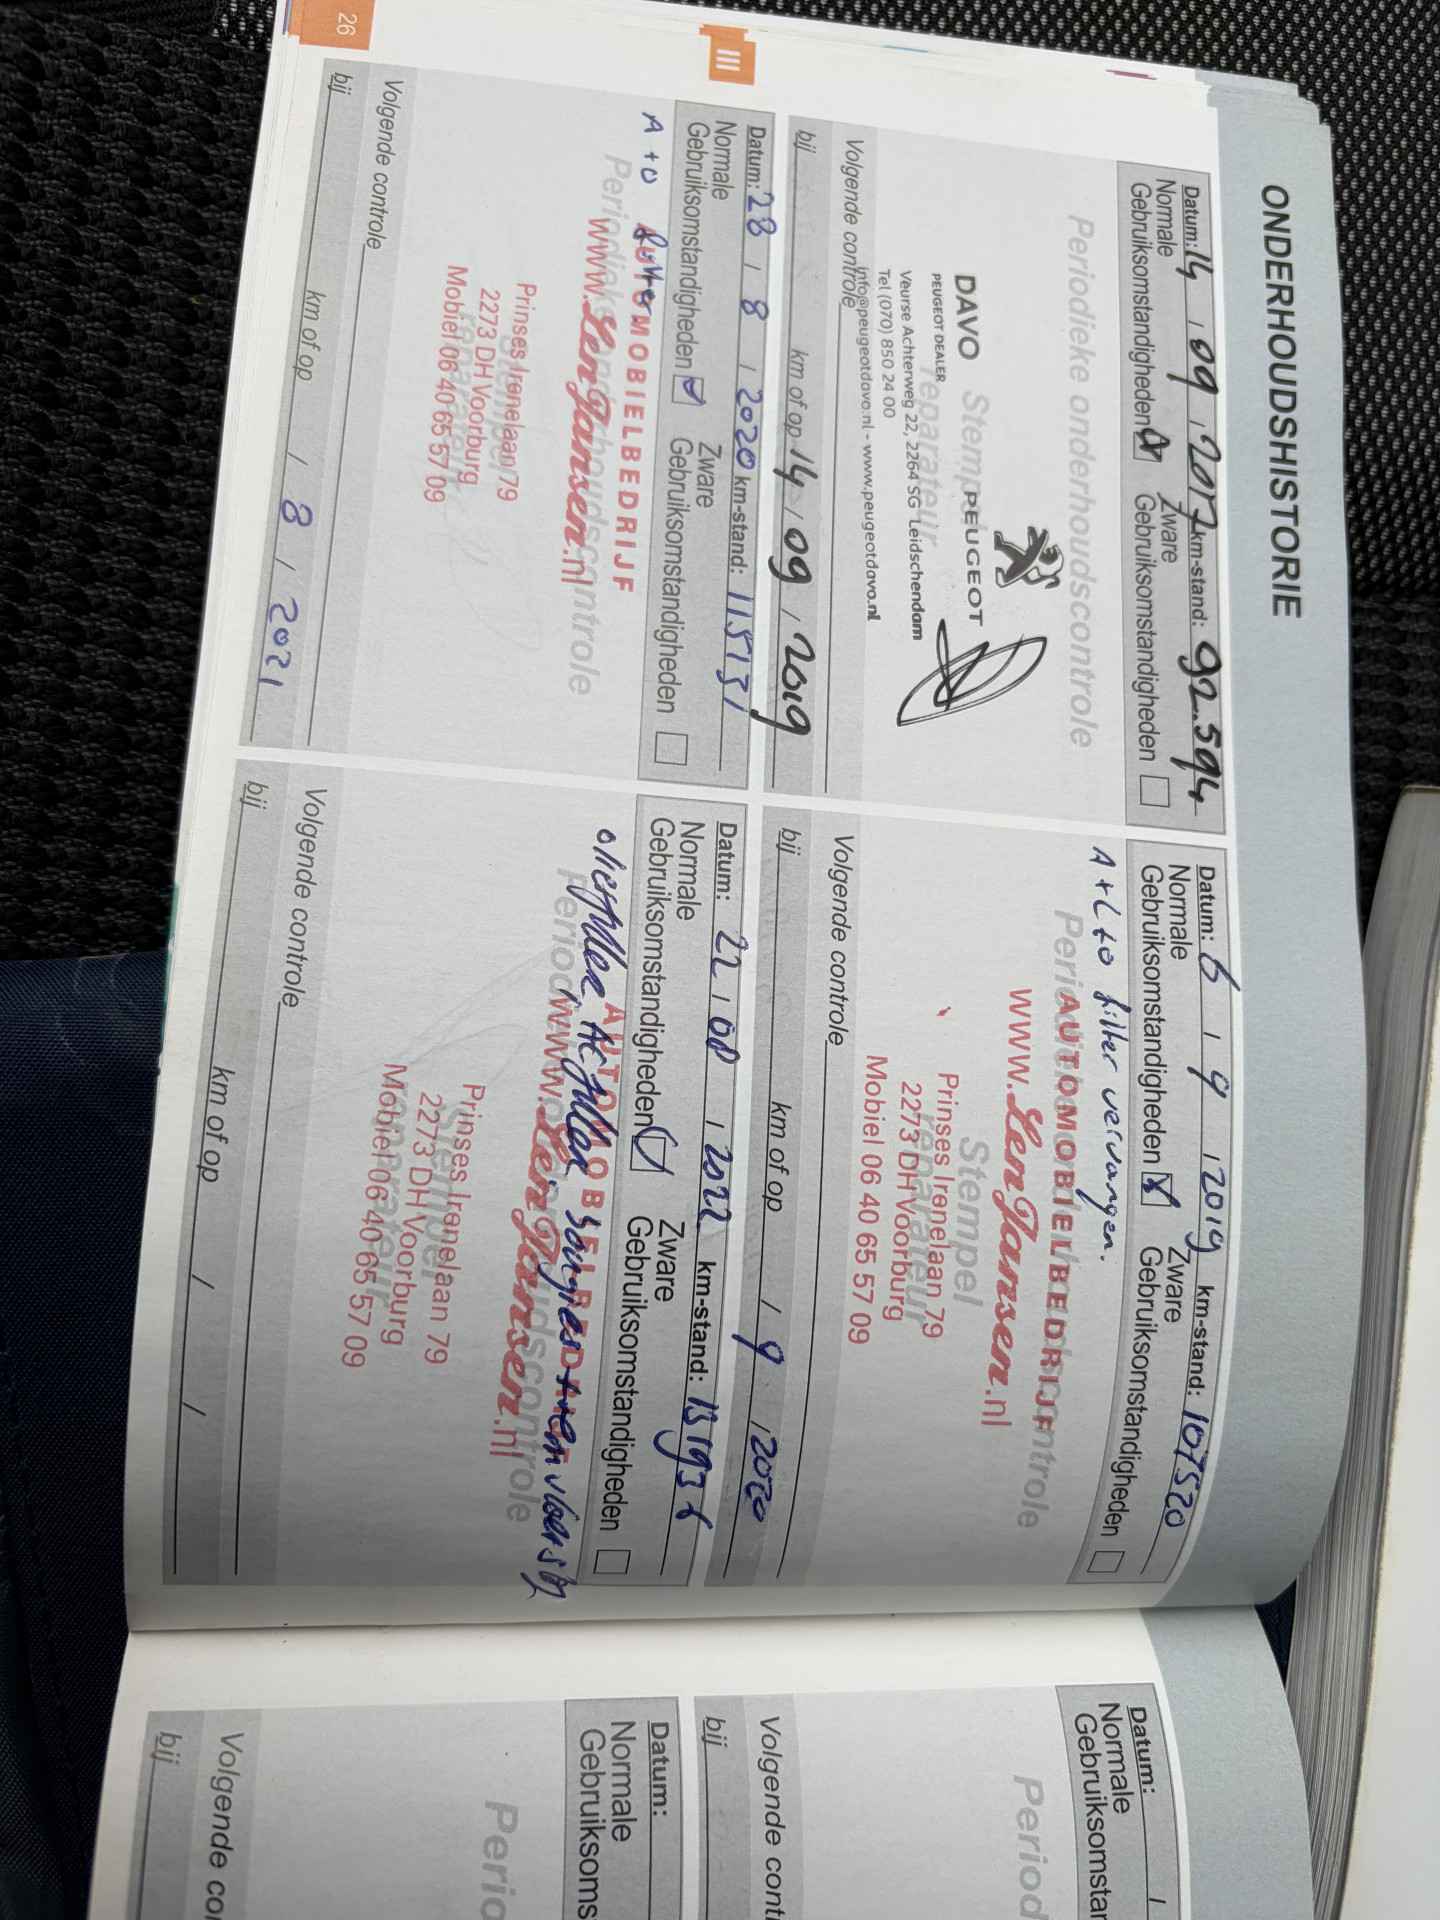 ONDERHOUDSHISTORIE
Datum: 14 / 09 / 2017 km-stand: 92.594
Normale Zware
Gebruiksomstandigheden Gebruiksomstandigheden
Periodieke onderhoudscontrole
Stempel
reparateur
DAVO PEUGEOT
PEUGEOT DEALER
Veurse Achterweg 22, 2264 SG Leidschendam
Tel (070) 850 24 00
info@peugeotdavo.nl - www.peugeotdavo.nl
Volgende controle
bij km of op 14 / 09 / 2019
Datum: 6 / 9 / 2019 km-stand: 107520
Normale Zware
Gebruiksomstandigheden Gebruiksomstandigheden
A + L + O filter vervangen.
Periodieke onderhoudscontrole
AUTOMOBIELBEDRIJF
www.LenJansen.nl
Stempel
reparateur
Prinses Irenelaan 79
2273 DH Voorburg
Mobiel 06 40 65 57 09
Volgende controle
bij km of op / 9 / 2020
III
Datum: 28 / 8 / 2020 km-stand: 115131
Normale Zware
Gebruiksomstandigheden Gebruiksomstandigheden
A + O
Periodieke onderhoudscontrole
AUTOMOBIELBEDRIJF
www.LenJansen.nl
Stempel
reparateur
Prinses Irenelaan 79
2273 DH Voorburg
Mobiel 06 40 65 57 09
Volgende controle
bij km of op / 8 / 2021
Datum: 22 / 08 / 2022 km-stand: 131936
Normale Zware
Gebruiksomstandigheden Gebruiksomstandigheden
Periodieke onderhoudscontrole
AUTOMOBIELBEDRIJF
www.LenJansen.nl
Stempel
reparateur
Prinses Irenelaan 79
2273 DH Voorburg
Mobiel 06 40 65 57 09
Volgende controle
bij km of op / /
26
Datum: /
Normale
Gebruiksomstan
Period
Volgende cont
bij
Datum:
Normale
Gebruiksoms
Perio
Volgende co
bij